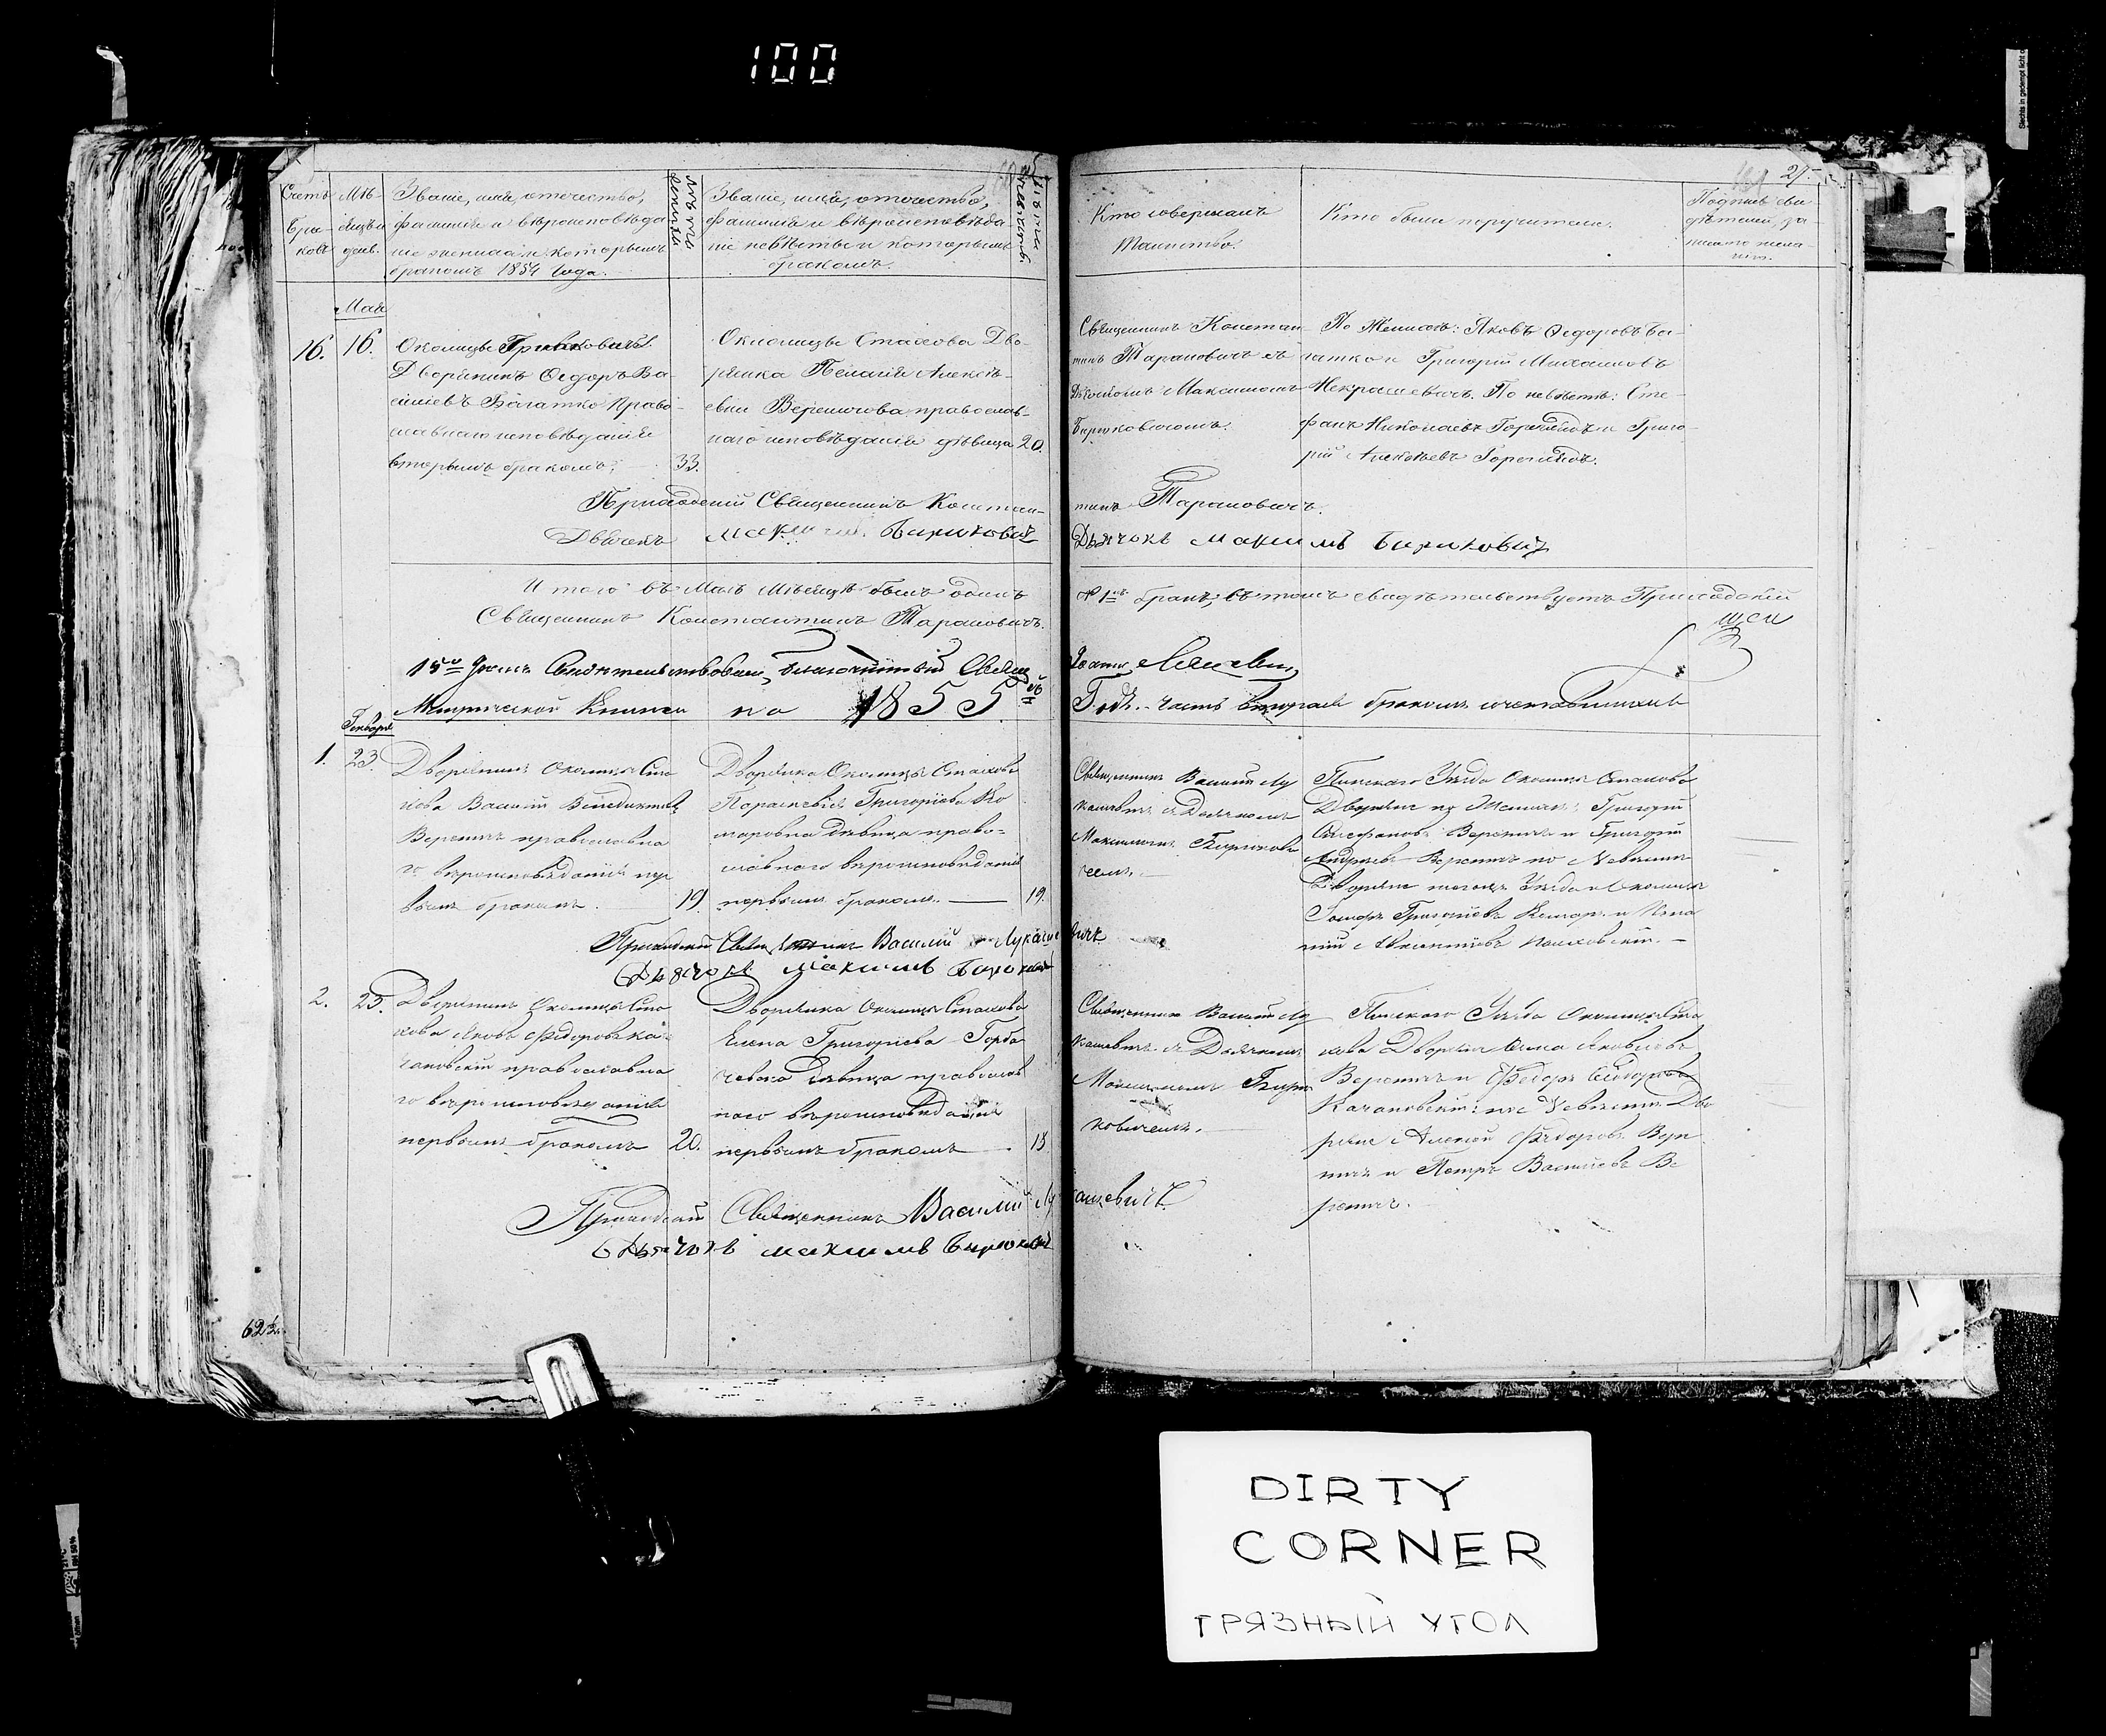 100
Счетъ Бра-ковъ
Мѣ-сяцъ и день.
Званіе, имя, отчество,
фамилія и вѣроисповѣда-
ніе жениха и которымъ
бракомъ 1854 Года.
Лѣта жениха
Званіе, имя, отчество,
фамилія и вѣроисповѣда-
ніе невѣсты и которымъ
бракомъ.
Лѣта невѣсты.
Кто совершалъ
Таинство.
Кто были поручители.
Подпись сви-
дѣтелей, за-
писи по жела-
нію.
Мая
16. 16.
Околицы
Дворянинъ Ѳедоръ Ва-
сильевъ Богатко Право-
славнаго исповѣданія
вторымъ бракомъ. 33.
Околицы Стахова Дво-
рянка Пелагія Алексѣ-
евна Вереничова, православ-
наго исповѣданія дѣвица 20.
Священникъ Констан-
тинъ Тарановичъ съ
Дьячкомъ Максимомъ
Бирюковичомъ.
По Женихѣ: Яковъ Ѳедоровъ Бо-
гатко и Григорій Михайловъ
Некрашевичъ. По невѣстѣ: Сте-
фанъ Николаевъ и Григо-
рій Алексѣевъ
Приходскій Священникъ Констан-
тинъ Тарановичъ.
Дьячокъ Максимъ Бирюковичъ
Дьячокъ Максимъ Бирюковичъ
Итого въ Маѣ Мѣсяцѣ былъ одинъ
№ 1нъ бракъ, въ томъ свидѣтельствуетъ Приходскій
Священникъ Константинъ Тарановичъ.
Свидѣтельствовалъ Благочинный
Іоаннъ
Метрической Книги на 1855й
Годъ. Часть вторая о бракомъ сочетавшихся
Генваря
1. 23.
Дворянинъ Околицы Ста
хова Василій Венедиктовъ
Вереничъ православна
го вѣроисповѣданія пер
вымъ бракомъ. 19.
Дворянка Околицы Стахова
Параскевія Григоріева Ко
маровна дѣвица право-
славнаго вѣроисповѣданія
первымъ бракомъ. 19.
Священникъ Василій Лу
кашевичъ съ Дьячкомъ
Максимомъ Бирюкови
чемъ.
Пинскаго Уѣзда Околицы Стахова
Дворяне по Женихѣ: Григорій
Стефановъ Вереничъ и Григорій
Андреевъ Вереничъ по Невѣстѣ
Дворяне тогожъ Уѣзда и Околицы
Григоріевъ Комаръ и Игна
тій
Приходскій Священникъ Василій Лукаше
вичъ
Дьячокъ Максимъ Бирюкович
2. 25.
Дворянинъ Околицы Ста
хова Яковъ Ѳедоровъ Ка-
чановскій православна
го вѣроисповѣданія
первымъ бракомъ 20.
Дворянка Околицы Стахова
Елена Григоріева Горба
чевска дѣвица православ
наго вѣроисповѣданія
первымъ бракомъ 18
Священникъ Василій Лу
кашевичъ съ Дьячкомъ
Максимомъ Бирю
ковичемъ.
Пинскаго Уѣзда Околицы Ста
хова Дворяне Яковлевъ
Вереничъ и Ѳедоръ
Качановскій по Невѣстѣ Дво
ряне Алексѣй Ѳедоровъ Вере
ничъ и Петръ Васильевъ Ве
реничъ.
Приходскій Священникъ Василій Лу
кашевичъ
Дьячокъ Максимъ Бирюкович
DIRTY
CORNER
ГРЯЗНЫЙ УГОЛ